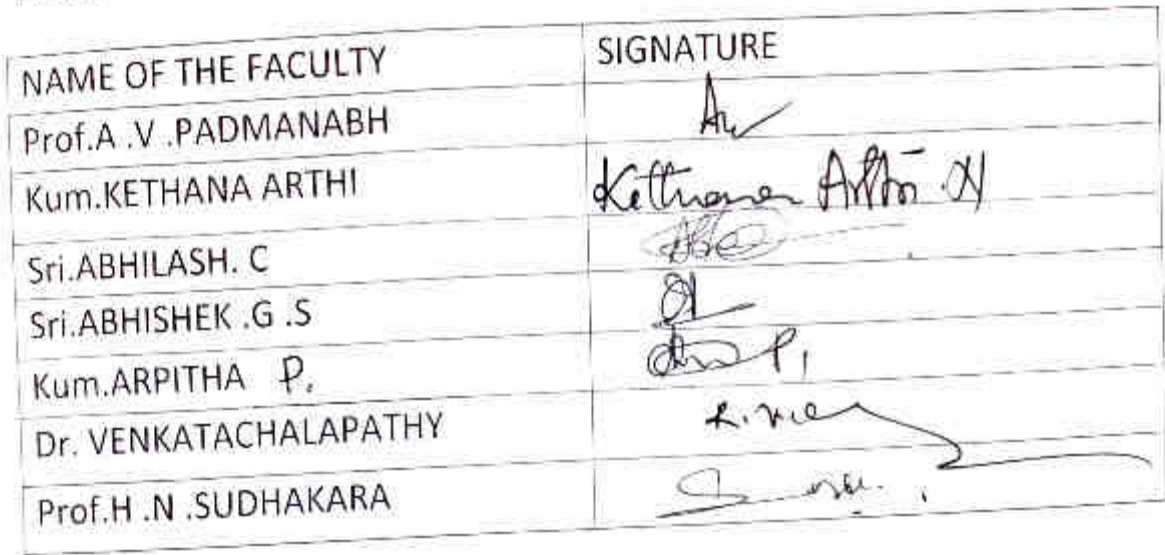 NAME OF THE FACULTY SIGNATURE
Prof.A .V .PADMANABH
Kum.KETHANA ARTHI Kethana Arthi .N
Sri.ABHILASH. C
Sri.ABHISHEK .G .S
Kum.ARPITHA P.
Dr. VENKATACHALAPATHY
Prof.H .N .SUDHAKARA